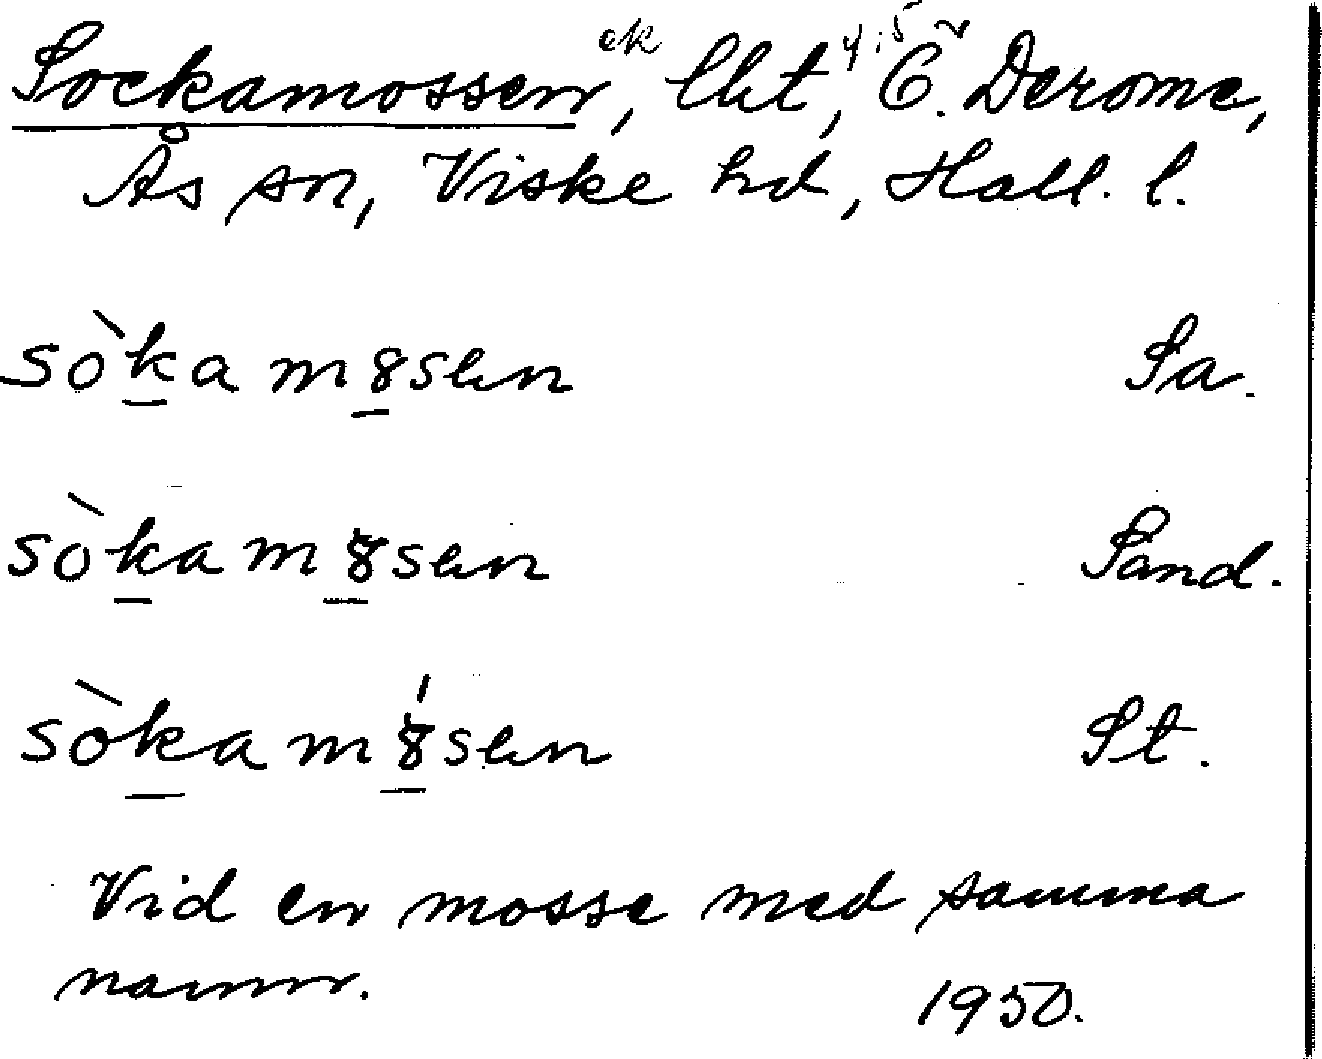 Sockamossen, ek lht, y; 5 C. Derome,
Ås sn, Viske hd, Hall. l.
sòkam8sen Sa.
sòkam8sen Sand.
sòkam8́sen St.
Vid en mosse med samma
namn. 1950.